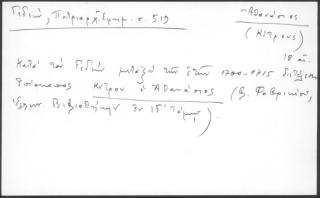 Γεδεών, Πατριαρχ. Εφημ. σ. 519
Αθανάσιος
(Κίτρους)
18 αι.
Κατά τον Γεδεών μεταξύ των ετών 1700-1715 διετέλεσεν
Επίσκοπος Κίτρου ο Αθανάσιος (βλ. Φαβρικίου,
Ελλην. Βιβλιοθήκην εν ΙΒ' Τόμῳ).